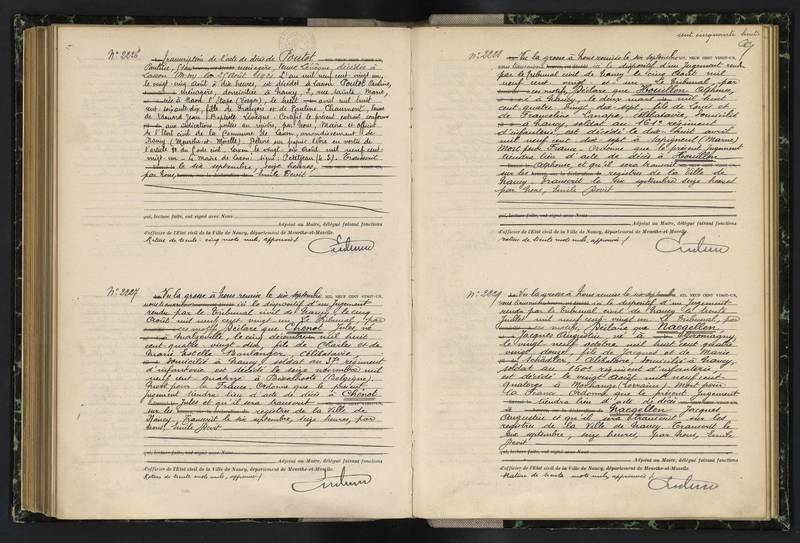 cent cinquante huit
Nº 2226
Transcription de l'acte de décès de Poutot
décédée à
Laxou (M. M.) le 25 Août 1921. L'an mil neuf cent vingt un,
le vingt cinq août à dix heures, est décédée à Laxou Poutot Pauline,
domiciliée à Nancy, 2, rue Sainte Marie,
née à Raon l'Etape (Vosges), le
fille de François et de Pauline Chaumont, veuve
de Edouard Jean Baptiste Lévêque. Certifié le présent extrait conforme
aux indications portées au registre, par Nous, Maire et officier
de l'Etat civil de la Commune de Laxou, arrondissement de
Nancy (Meurthe et Moselle). Délivré sur papier libre en vertu de
l'article 80 du Code civil. Laxou le vingt six août mil neuf cent
vingt un. Le Maire de Laxou signé: Petitjean (L.S). Transcrit
le six septembre, seize heures,
par Nous, Emile Devit
qui, lecture faite, ont signé avec Nous
Adjoint au Maire, délégué faisant fonctions
d'officier de l'Etat civil de la Ville de Nancy, département de Meurthe-et-Moselle.
Rature de trente cinq mots nuls, approuvée /
Nº 2227
Vu la grosse à Nous remise le six septembre MIL NEUF CENT VINGT-UN,
ici le dispositif d'un Jugement
rendu par le Tribunal civil de Nancy, le cinq
Août mil neuf cent vingt un. Le Tribunal, par
ces motifs, Déclare que Chonot Jules né
à Malzéville, le cinq décembre mil huit
cent quatre vingt dix, fils de Charles et de
Marie Estelle Boulanger, célibataire
domicilié à Nancy, soldat au 37e régiment
d'infanterie est décédé le seize novembre mil
neuf cent quatorze à Bixschoote (Belgique),
Mort pour la France. Ordonne que le présent
jugement tiendra lieu d'acte de décès à Chonot
Jules et qu'il sera transcrit
sur les registres de la Ville de
Nancy. Transcrit le six septembre, seize heures, par
Nous, Emile Devit
qui, lecture faite, ont signé avec Nous
Adjoint au Maire, délégué faisant fonctions
d'officier de l'Etat civil de la Ville de Nancy, département de Meurthe-et-Moselle.
Rature de trente mots nuls, approuvée /
Nº 2228
Vu la grosse à Nous remise le six septembre MIL NEUF CENT VINGT-UN,
ici le dispositif d'un Jugement rendu
par le Tribunal civil de Nancy le cinq Août mil
neuf cent vingt et un. Le Tribunal, par
ces motifs, Déclare que Houillon Alphonse,
né à Nancy, le deux mars mil huit
cent quatre vingt dix sept, fils de Louis et
de Francoise célibataire, domicilié
à Nancy, soldat au régiment
d'infanterie est décédé le dix huit avril
mil neuf cent dix sept à Sapigneul (Marne)
Mort pour la France. Ordonne que le présent Jugement
tiendra lieu d'acte de décès à Houillon
Alphonse, et qu'il sera transcrit
sur les registres de la Ville de
Nancy. Transcrit le six septembre seize heures
par Nous, Emile Devit
qui, lecture faite, ont signé avec Nous
Adjoint au Maire, délégué faisant fonctions
d'officier de l'Etat civil de la Ville de Nancy, département de Meurthe-et-Moselle.
rature de trente mots nuls, approuvée /
Nº 2229
Vu la grosse à Nous remise le six septembre MIL NEUF CENT VINGT-UN,
ici le dispositif d'un Jugement
rendu par le Tribunal civil de Nancy le trente
Juillet mil neuf cent vingt un. Le Tribunal, par
ces motifs, Déclare que Naegellen
Jacques Augustin, né à Giromagny,
le vingt neuf octobre mil huit cent quatre
vingt douze, fils de Jacques et de Marie
célibataire, domicilié à Nancy,
soldat au 160e régiment d'infanterie
est décédé le vingt août mil neuf cent
quatorze à Morhange (Lorraine) Mort pour
la France. Ordonne que le présent Jugement
tiendra lieu d'acte de décès
à Naegellen Jacques
Augustin et qu'il sera transcrit sur les
registres de la Ville de Nancy. Transcrit le
six septembre, seize heures, par Nous, Emile
Devit
qui, lecture faite, ont signé avec Nous
Adjoint au Maire, délégué faisant fonctions
d'officier de l'Etat civil de la Ville de Nancy, département de Meurthe-et-Moselle.
Rature de trente mots nuls, approuvée /